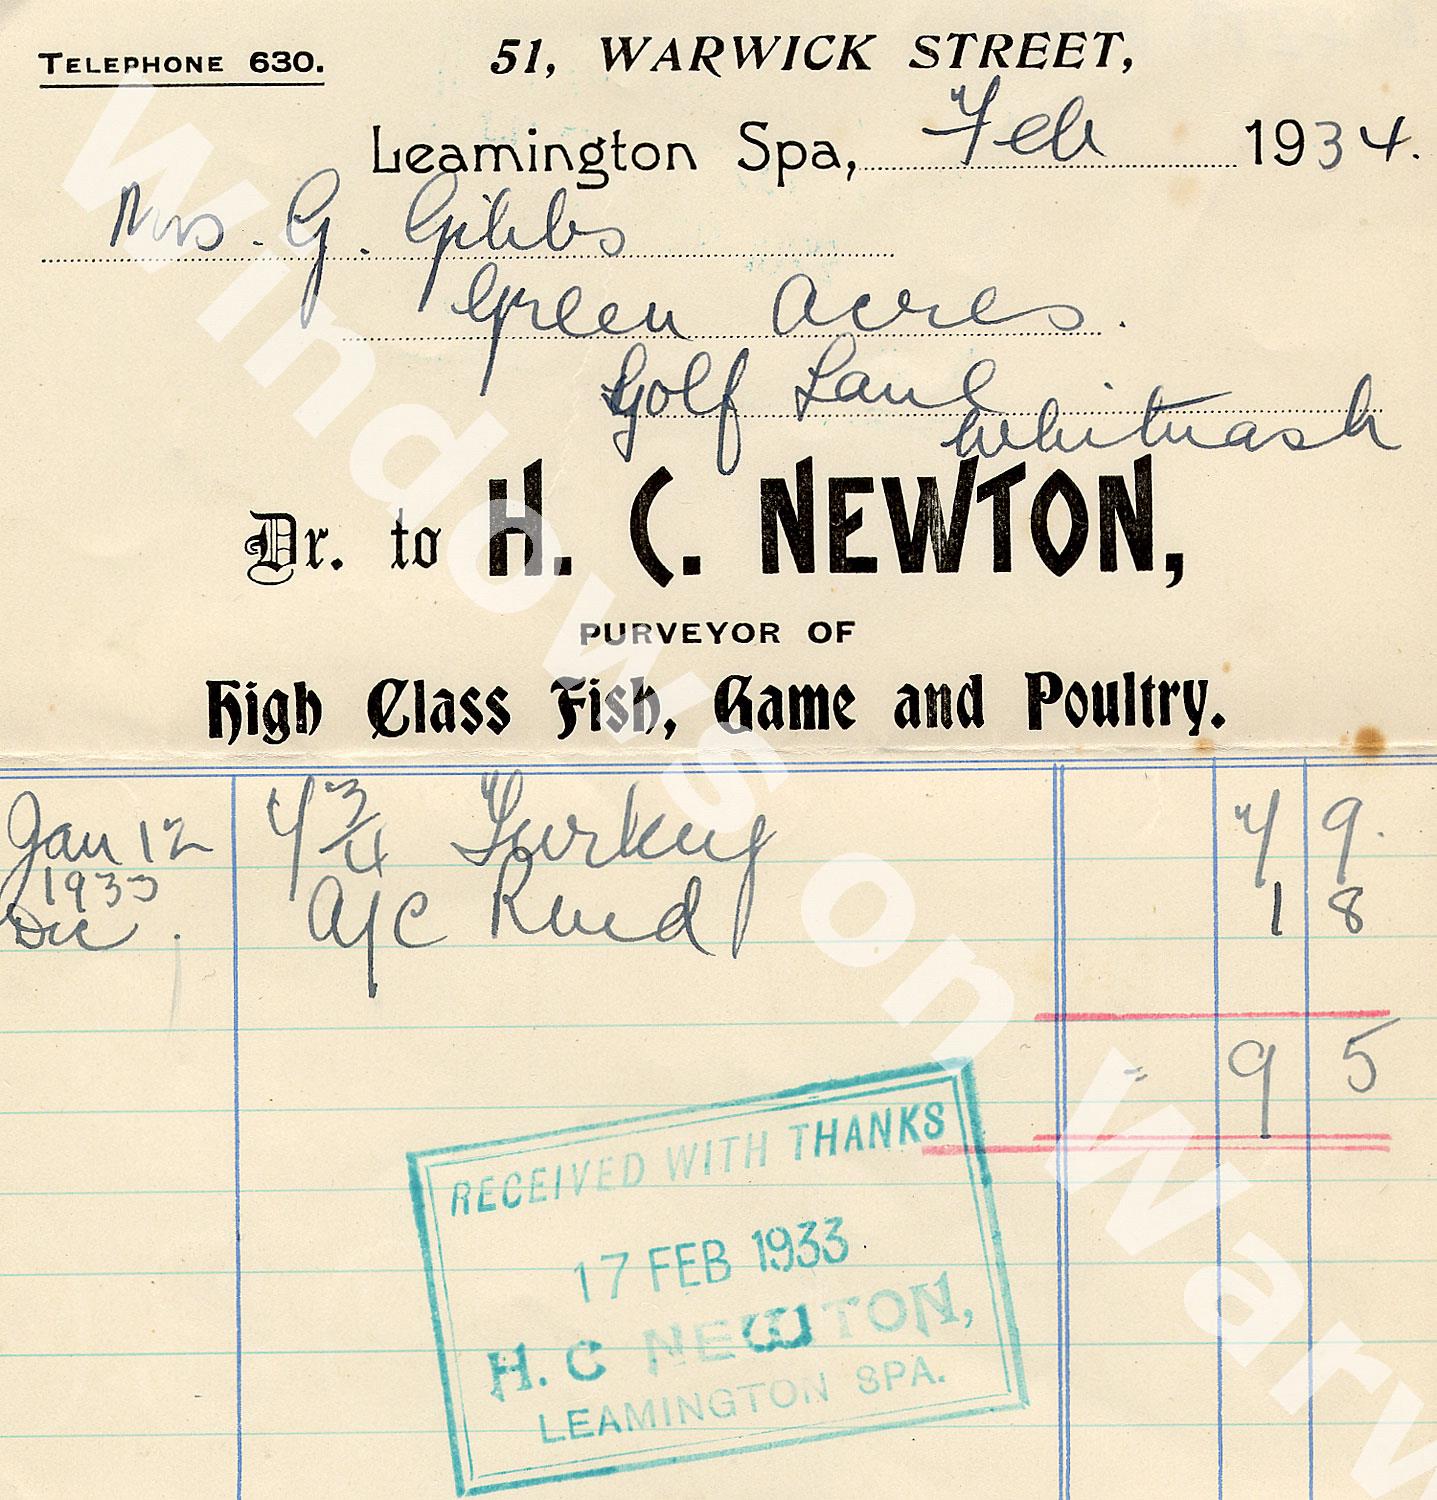 TELEPHONE 630.
51, WARWICK STREET,
Leamington Spa, Feb 1934.
Mrs. G. Gibbs
Green Acres.
Golf Lane
Whitnash
Dr. to H. C. NEWTON,
PURVEYOR OF
High Class Fish, Game and Poultry.
Jan 12 4 3/4 Turkey 7 9.
1933
Dec. A/C Rend 1 8
= 9 5
RECEIVED WITH THANKS
17 FEB 1933
H. C NEWTON,
LEAMINGTON SPA.
Windows on Warw